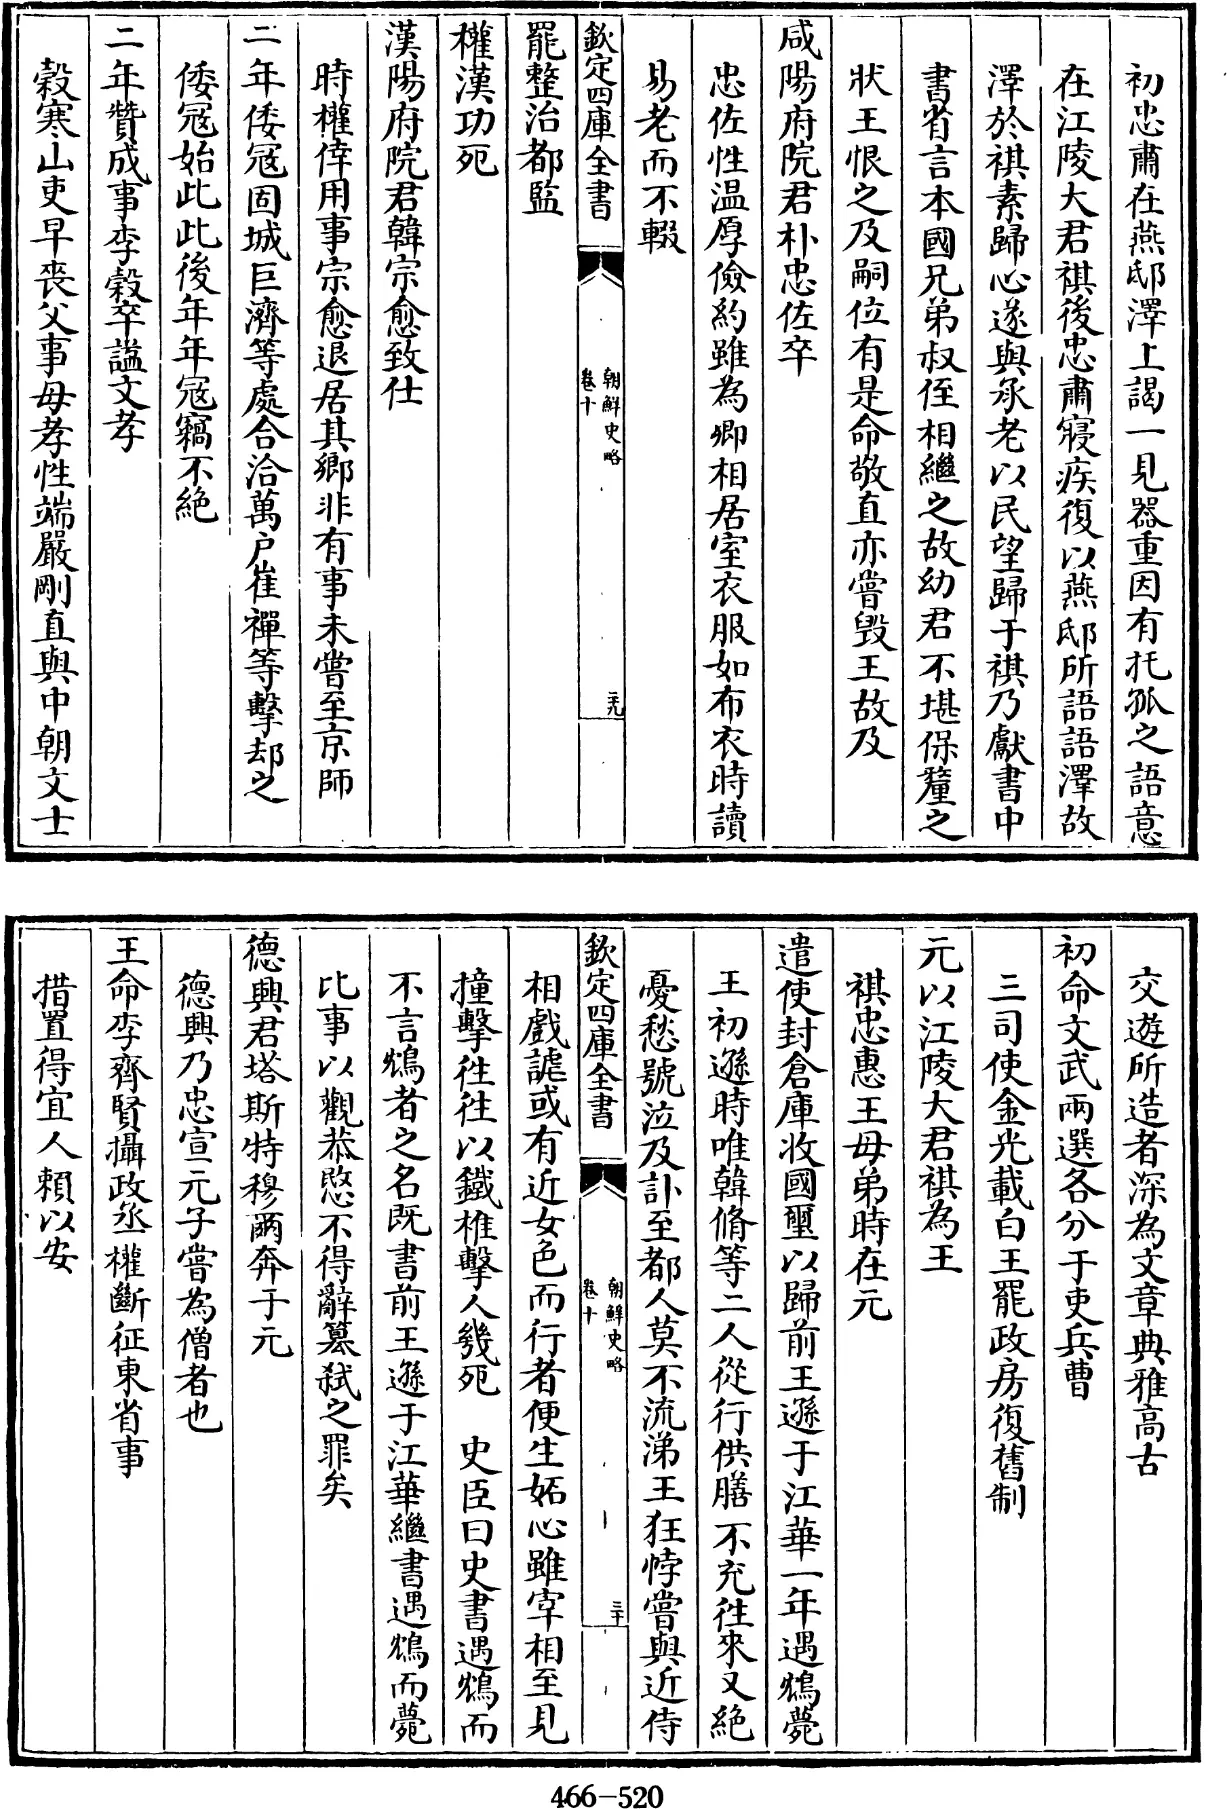 初忠肅在燕邸澤上謁一見器重因有托孤之語意
在江陵大君祺後忠肅寢疾復以燕邸所語語澤故
澤於祺素歸心遂與承老以民望歸于祺乃獻書中
書省言本國兄弟叔侄相繼之故幼君不堪保釐之
狀王恨之及嗣位有是命敬直亦嘗毁王故及
咸陽府院君朴忠佐卒
忠佐性温厚儉約雖為卿相居室衣服如布衣時讀
易老而不輟
欽定四庫全書
朝鮮史略
卷十
二十九
罷整治都監
權漢功死
漢陽府院君韓宗愈致仕
時權倖用事宗愈退居其鄉非有事未嘗至京師
二年倭寇固城巨濟等處合浦萬户崔禪等擊却之
倭寇始此此後年年寇竊不絶
二年贊成事李穀卒諡文孝
穀寒山吏早喪父事母孝性端嚴剛直與中朝文士
交遊所造者深為文章典雅高古
初命文武兩選各分于吏兵曹
三司使金光載白王罷政房復舊制
元以江陵大君祺為王
祺忠惠王母弟時在元
遣使封倉庫收國璽以歸前王遜于江華一年遇鴆薨
王初遜時唯韓脩等二人從行供膳不充往來又絶
憂愁號泣及訃至都人莫不流涕王狂悖嘗與近侍
欽定四庫全書
朝鮮史略
卷十
三十
相戲謔或有近女色而行者便生妬心雖宰相至見
撞擊往往以鐵椎擊人幾死　史臣曰史書遇鴆而
不言鴆者之名既書前王遜于江華繼書遇鴆而薨
比事以觀恭愍不得辭簒弑之罪矣
德興君塔斯特穆爾奔于元
德興乃忠宣元子嘗為僧者也
王命李齊賢攝政丞權斷征東省事
措置得宜人頼以安
466-520